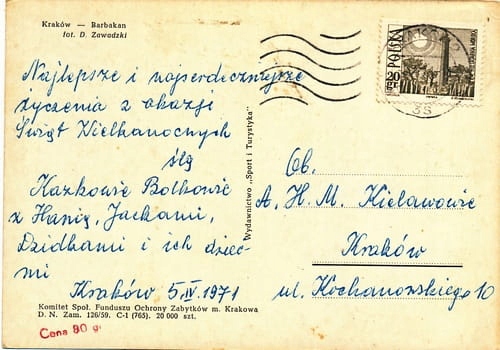 Kraków — Barbakan
fot. D. Zawadzki
Najlepsze i najserdeczniejsze
życzenia z okazji
Świąt Wielkanocnych
ślą
Kazkowie Bolkowie
z Hanią, Jackami,
Dzidkami i ich dzieć-
mi
Kraków 5.IV.1971
Komitet Społ. Funduszu Ochrony Zabytków m. Krakowa
D. N. Zam. 126/59. C-1 (765). 20 000 szt.
Cena 80 gr
Wydawnictwo „Sport i Turystyka"
POLSKA
20 GR
Ob.
A. H. M. Kielawowie
Kraków
ul. Kochanowskiego 10